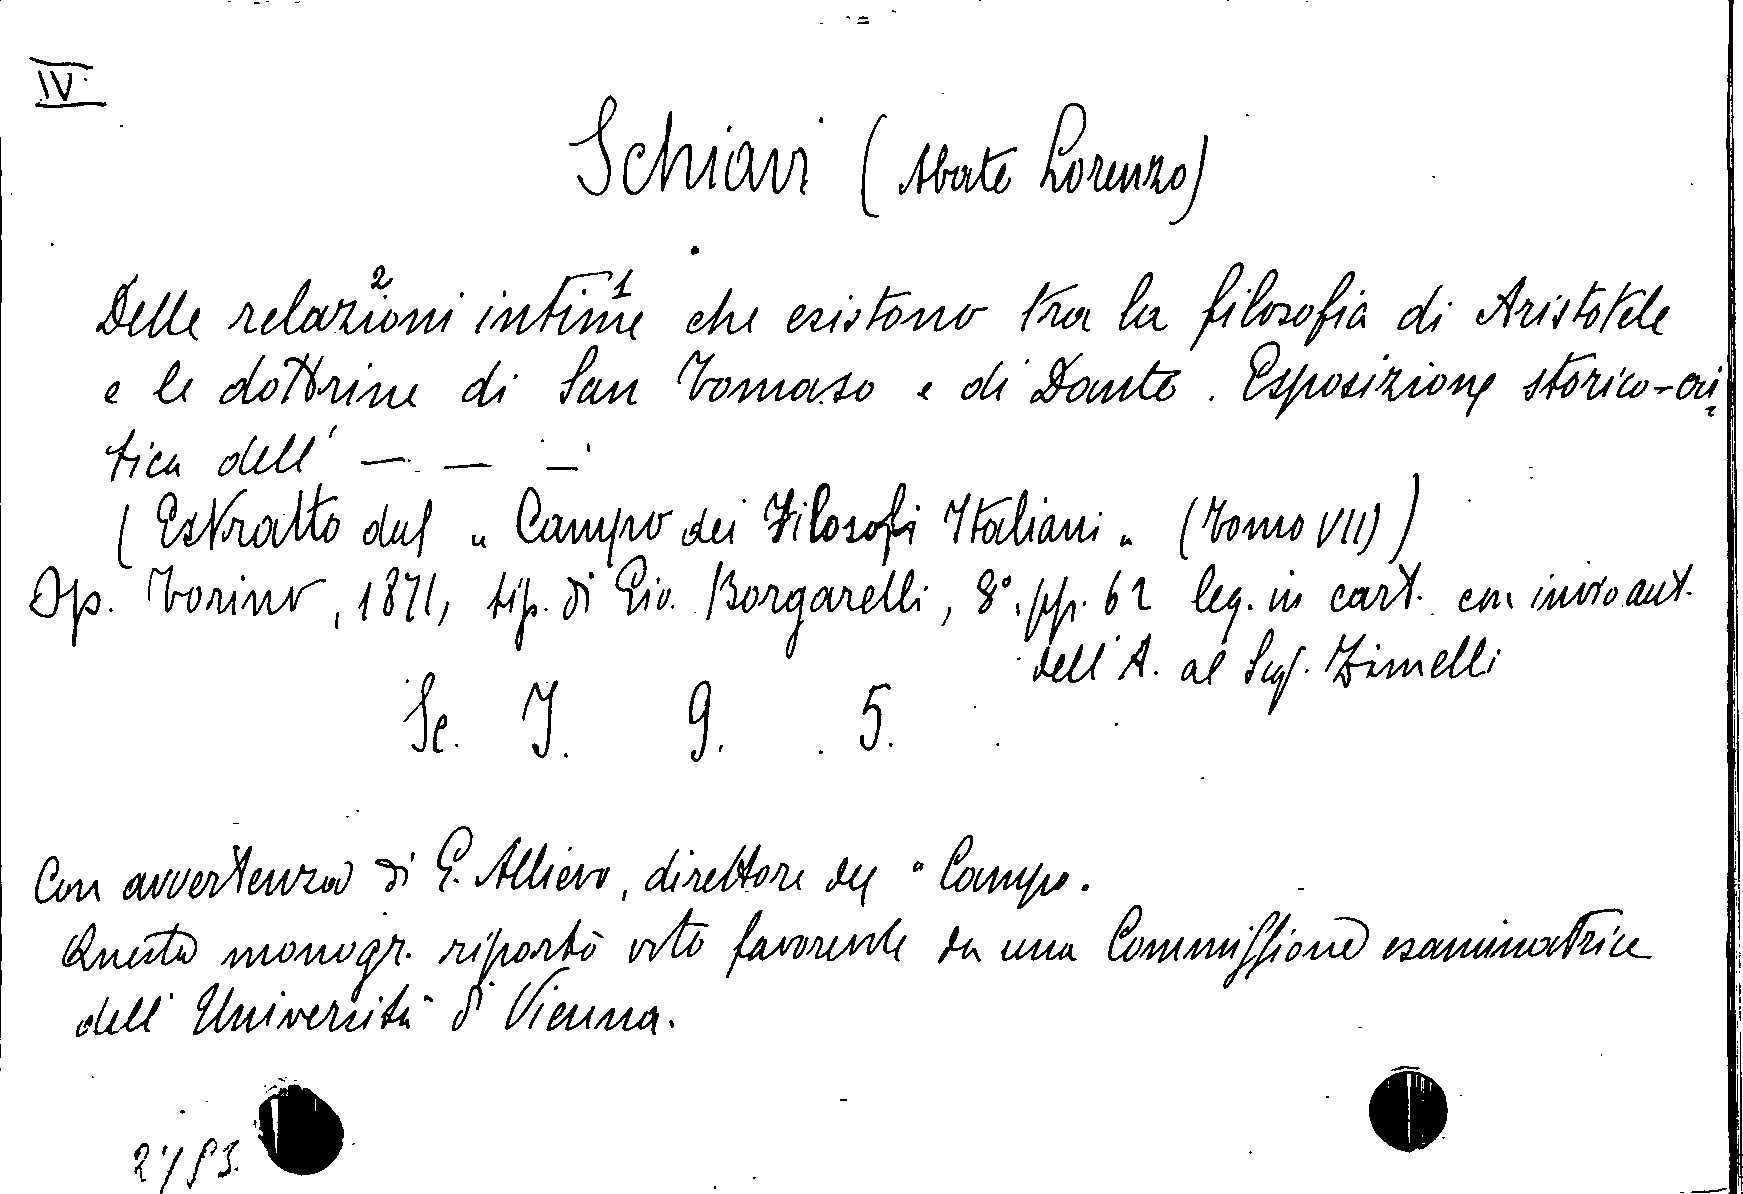 IV
Schiavi (Abate Lorenzo)
Delle relazioni² intime¹ che esistono tra la filosofia di Aristotele
e le dottrine di San Tomaso e di Dante. Esposizione storico-cri
tica dell' — — —
(Estratto dal „ Campo dei Filosofi Italiani „ (Tomo VII))
Op. Torino, 1871, tip. di Gio. Borgarelli, 8°, pp. 62 leg. in cart. con invio aut.
dell'A. al Sig. Zimelli
Se. I. 9. 5.
Con avvertenza di G. Allievo, direttore del "Campo.
Questa monogr. riportò voto favorevole da una Commissione esaminatrice
dell'Università di Vienna.